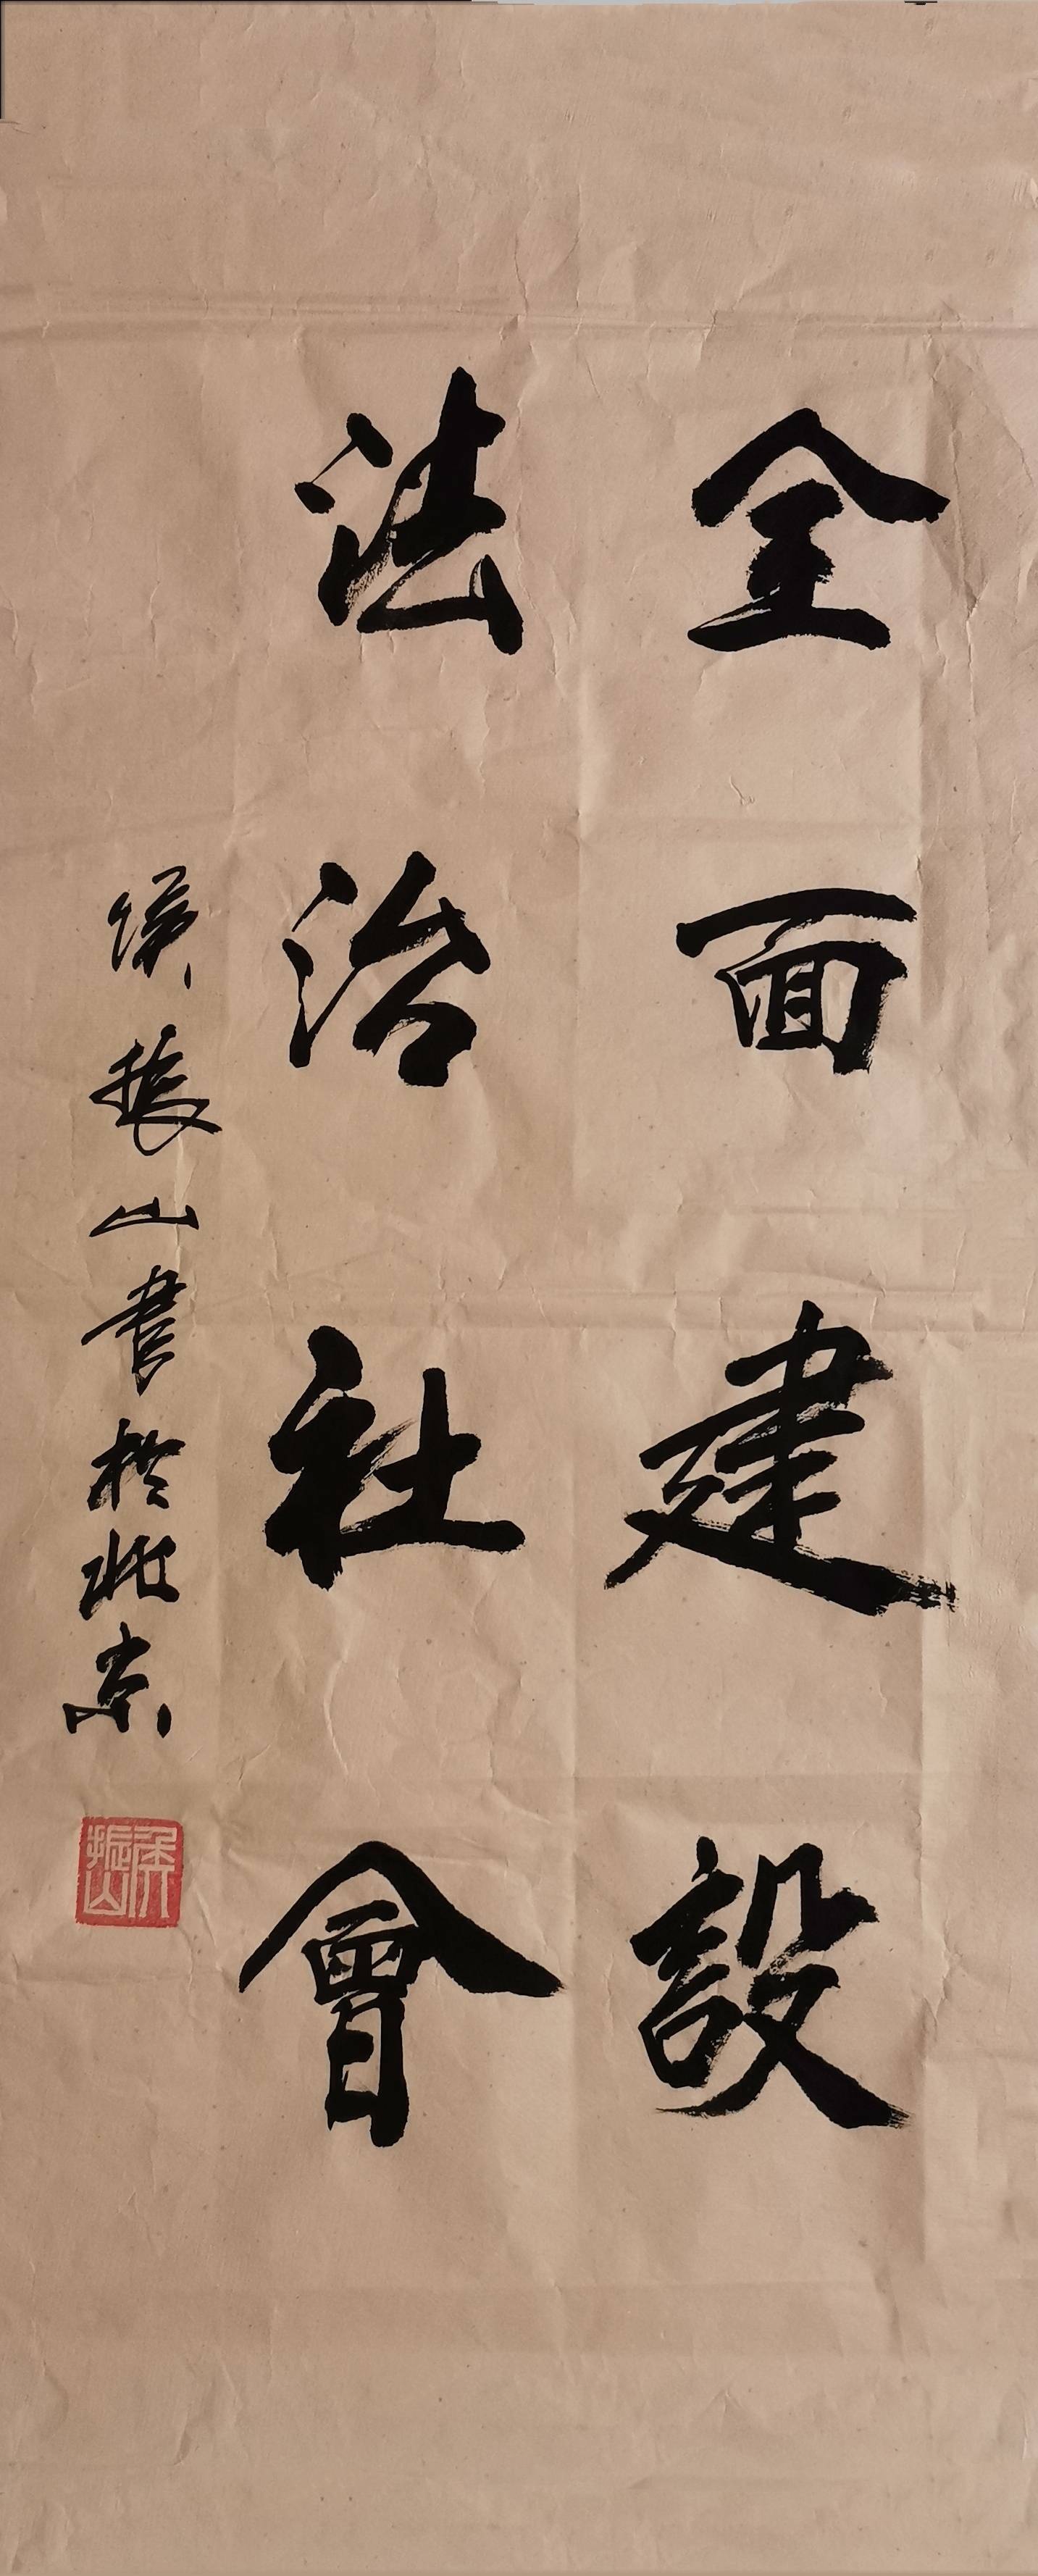 全面建設
法治社會
侯振山書於北京
侯振山